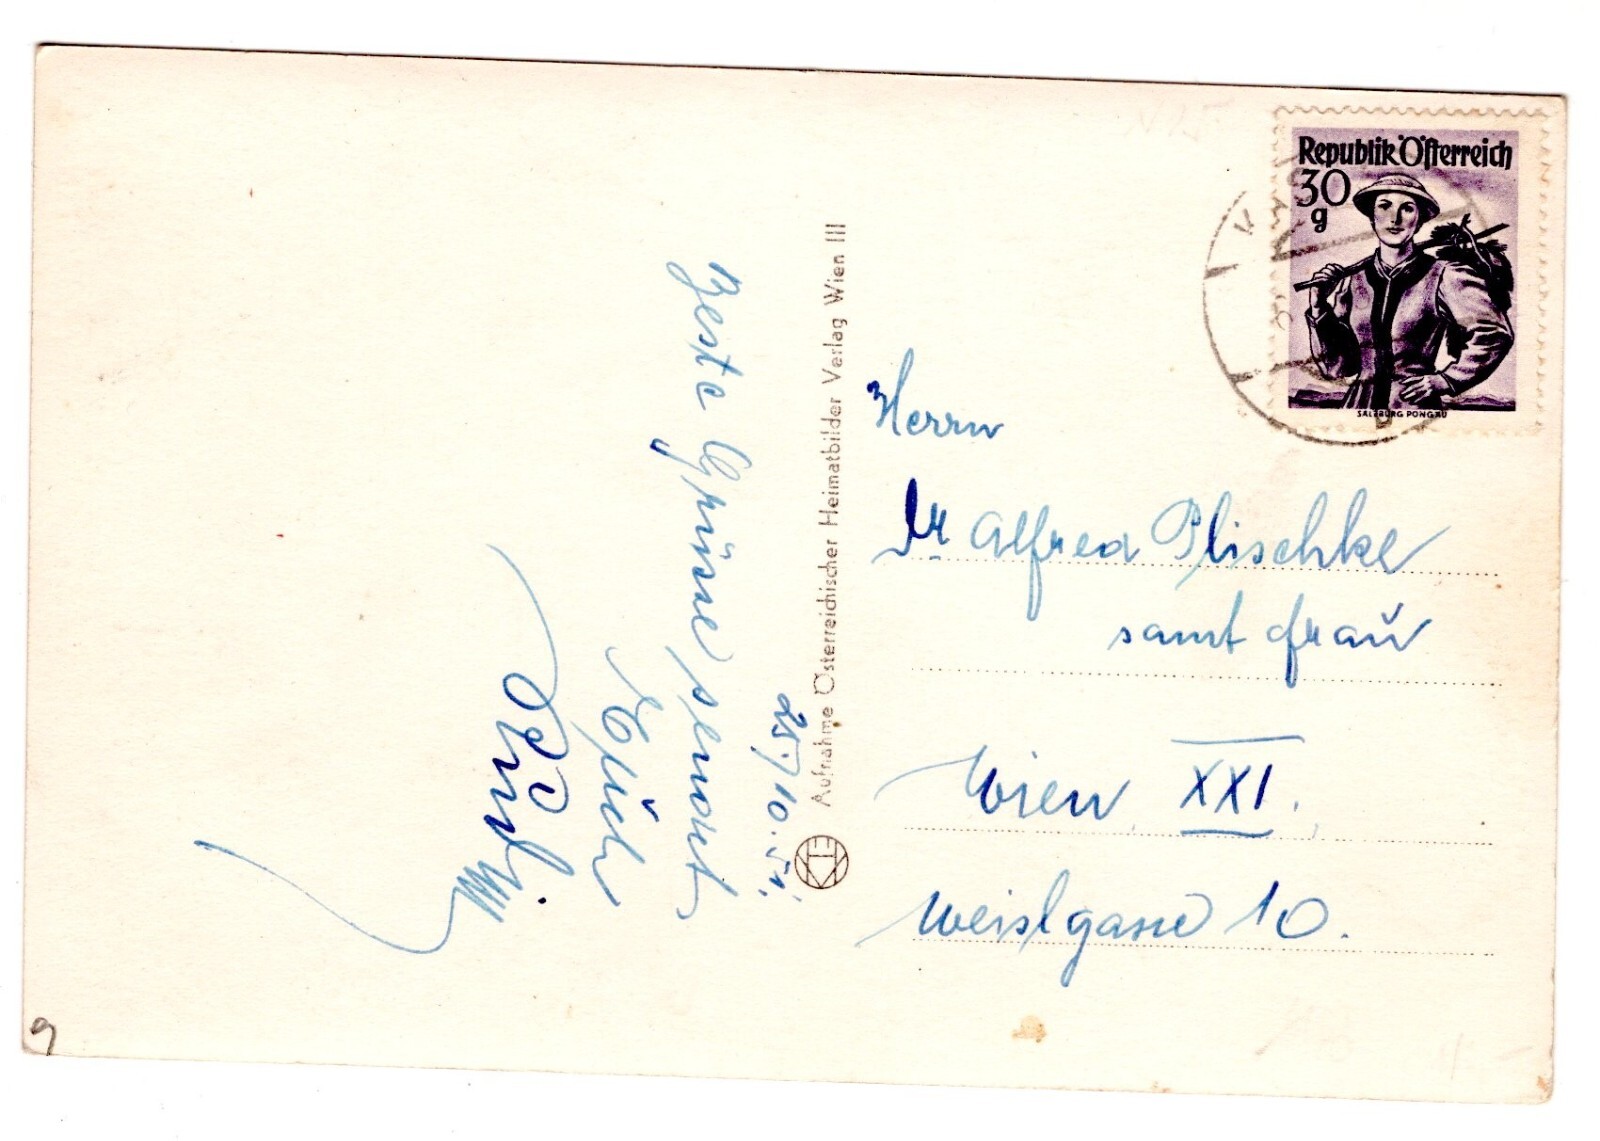 Republik Österreich
30
g
SALZBURG PONGAU
Herrn
Dr Alfred Plischke
samt Frau
Wien XXI.
Weislgasse 10.
Aufnahme Österreichischer Heimatbilder Verlag Wien III
25./10. 51.
Beste Grüsse sendet
Euch
9